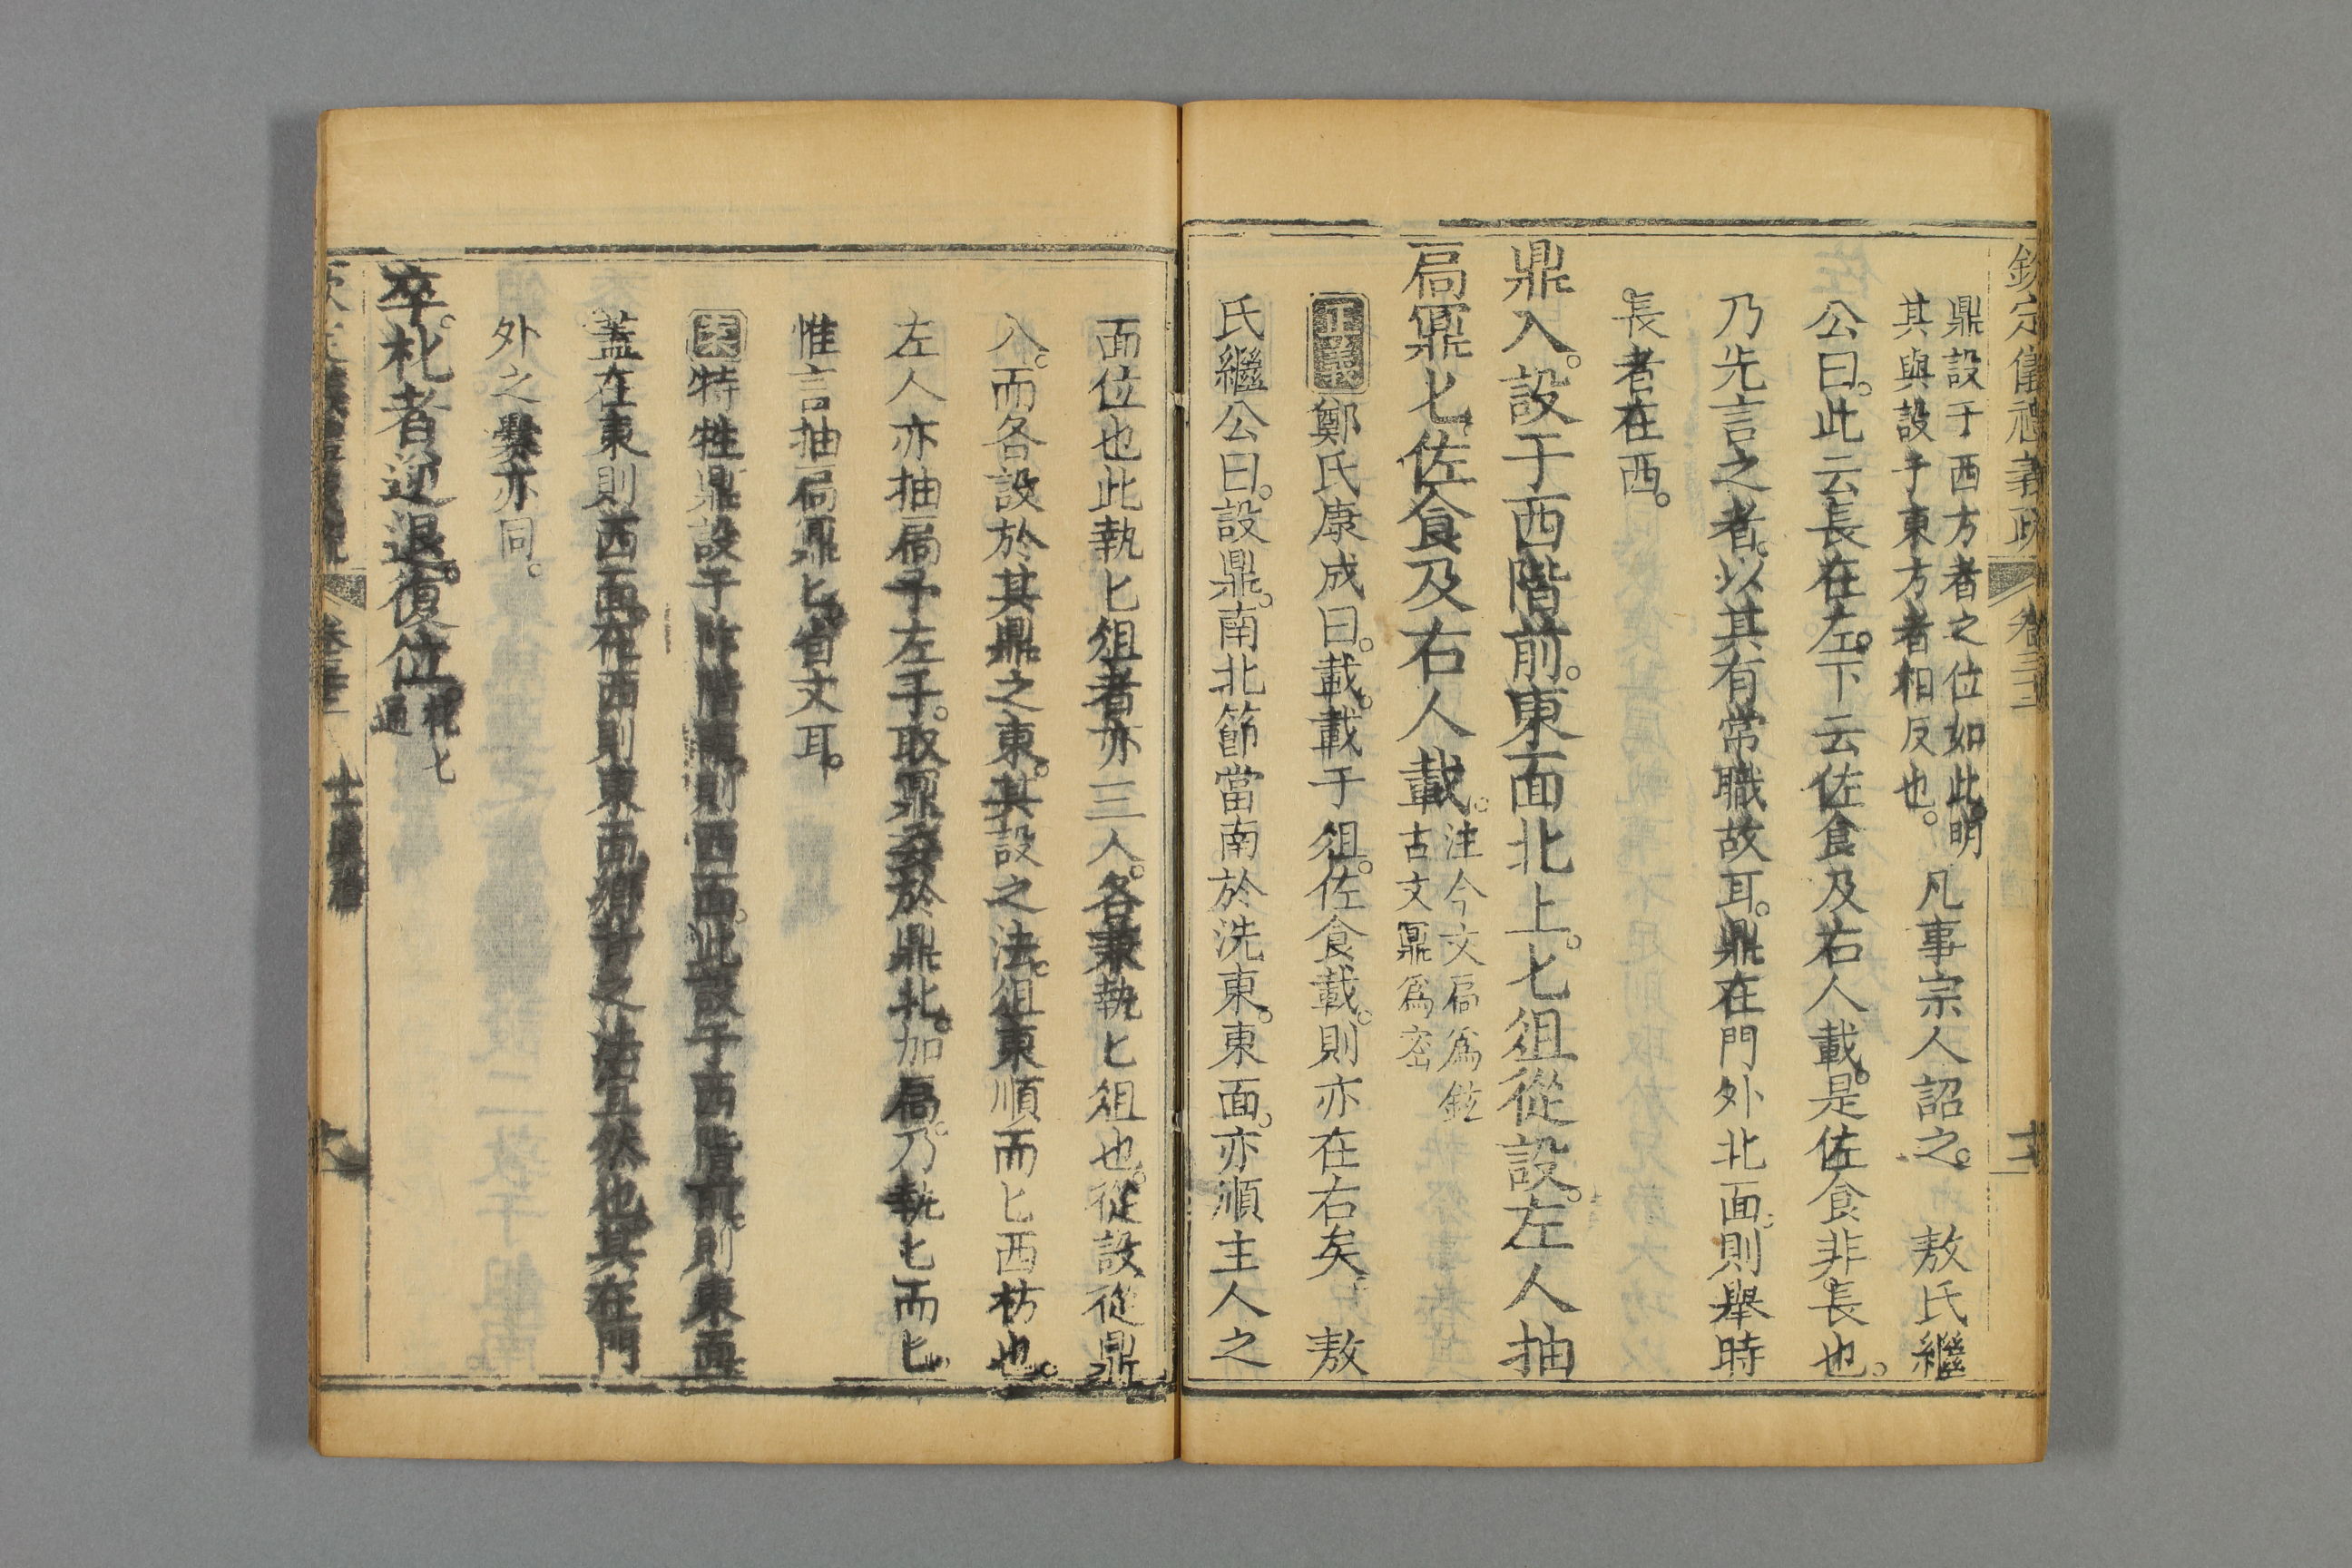 欽定儀禮義疏 卷三
鼎設于西方者之位如此明
其與設于東方者相反也。
凡事宗人詔之。 敖氏繼
公曰。此云長在左。下云佐食及右人載。是佐食非長也。
乃先言之者。以其有常職故耳。鼎在門外北面。則舉時
長者在西。
鼎入。設于西階前。東面北上。匕俎從設。左人抽
扃鼏匕。佐食及右人載。
注今文扃爲鉉
古文鼏爲密
正義鄭氏康成曰。載。載于俎。佐食載。則亦在右矣。 敖
氏繼公曰。設鼎。南北節當南於洗東。東面。亦順主人之
面位也此執匕俎者亦三人。各兼執匕俎也。從設從鼎
入。而各設於其鼎之東。其設之法。俎東順而匕西枋也。
左人亦抽扃予左手。取鼏委於鼎北。加扃。乃執匕而匕。
惟言抽扃鼏匕。省文耳。
案特牲鼎設于阼階南。則西面。此設于西階前。則東面
蓋在東則西面。在西則東面。鄉背之法宜然也。其在門
外之爨亦同。
卒。朼者逆退。復位。
朼匕
通